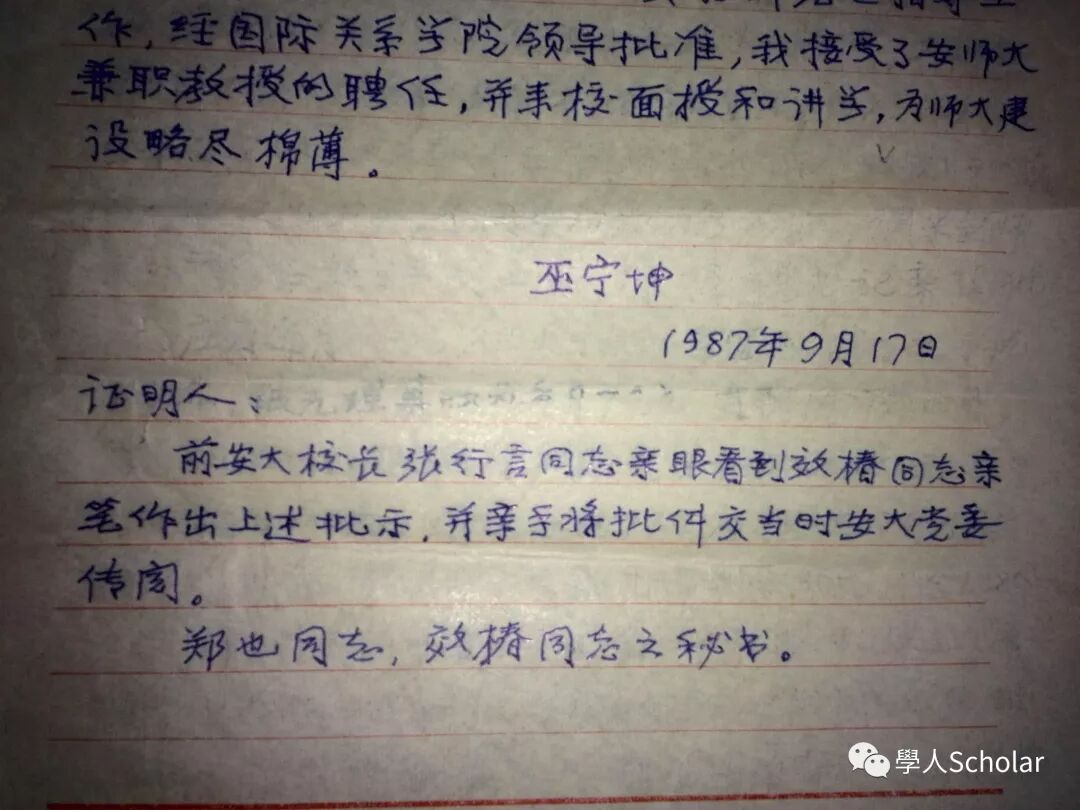 作，经国际关系学院领导批准，我接受了安师大
兼职教授的聘任，并来校面授和讲学，为师大建
设略尽棉薄。
巫宁坤
1987年9月17日
证明人：
前安大校长张行言同志亲眼看到效椿同志亲
笔作出上述批示，并亲手将批件交当时安大党委
传阅。
郑也同志，效椿同志之秘书。
學人Scholar